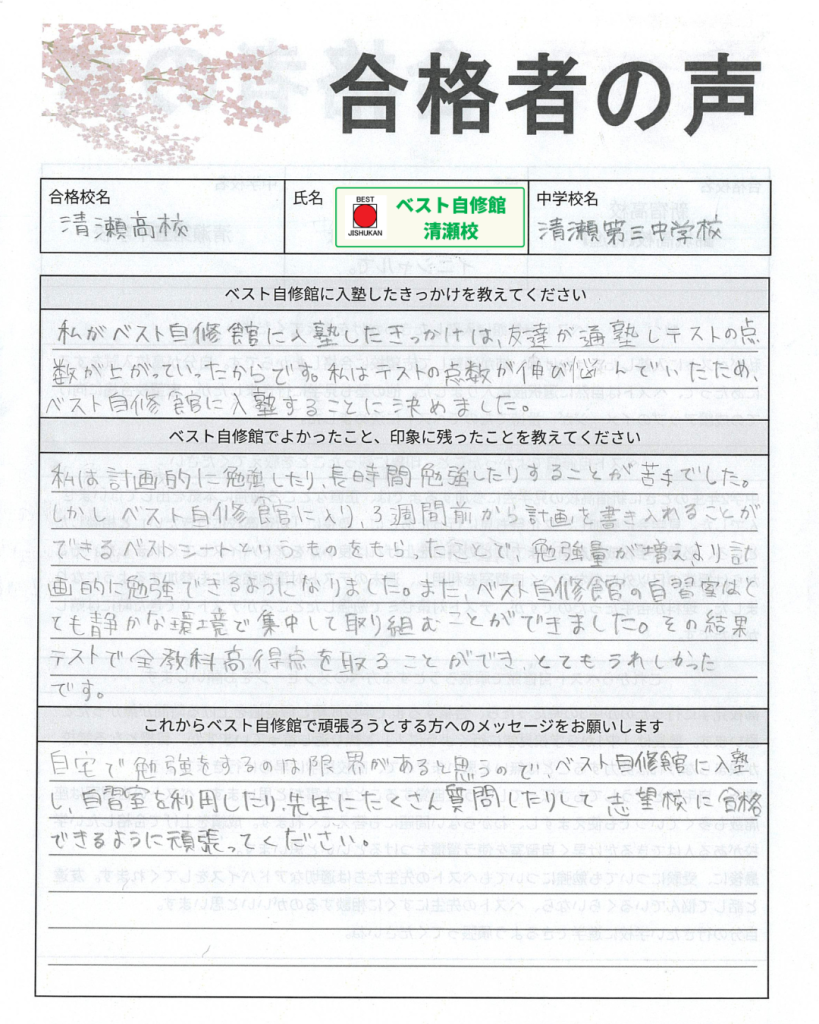 合格者の声
合格校名
清瀬高校
氏名
BEST
JISHUKAN
ベスト自修館
清瀬校
中学校名
清瀬第三中学校
ベスト自修館に入塾したきっかけを教えてください
私がベスト自修館に入塾したきっかけは、友達が通塾しテストの点
数が上がっていったからです。私はテストの点数が伸び悩んでいたため、
ベスト自修館に入塾することに決めました。
ベスト自修館でよかったこと、印象に残ったことを教えてください
私は計画的に勉強したり、長時間勉強したりすることが苦手でした。
しかし、ベスト自修館に入り、3週間前から計画を書き入れることが
できるベストシートというものをもらったことで、勉強量が増え、より計
画的に勉強できるようになりました。また、ベスト自修館の自習室はと
ても静かな環境で集中して取り組むことができました。その結果
テストで全教科高得点を取ることができ、とてもうれしかった
です。
これからベスト自修館で頑張ろうとする方へのメッセージをお願いします
自宅で勉強をするのは限界があると思うので、ベスト自修館に入塾
し、自習室を利用したり、先生にたくさん質問したりして志望校に合格
できるように頑張ってください。